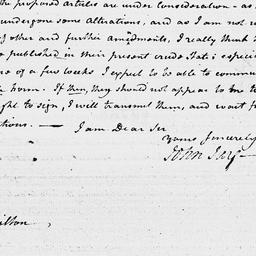 the proposed articles are under Consideration - as
undergone some alterations, and as I am not
of other and further amendments, I really think
published in their present crude State especi
of a few weeks I expect to be able to commun
form. If then, they should not appear to be to
ght to sign, I will transmit them, and wait fo
tions. — I am Dear Sir
Yours Sincerely
John Jay —
ilton